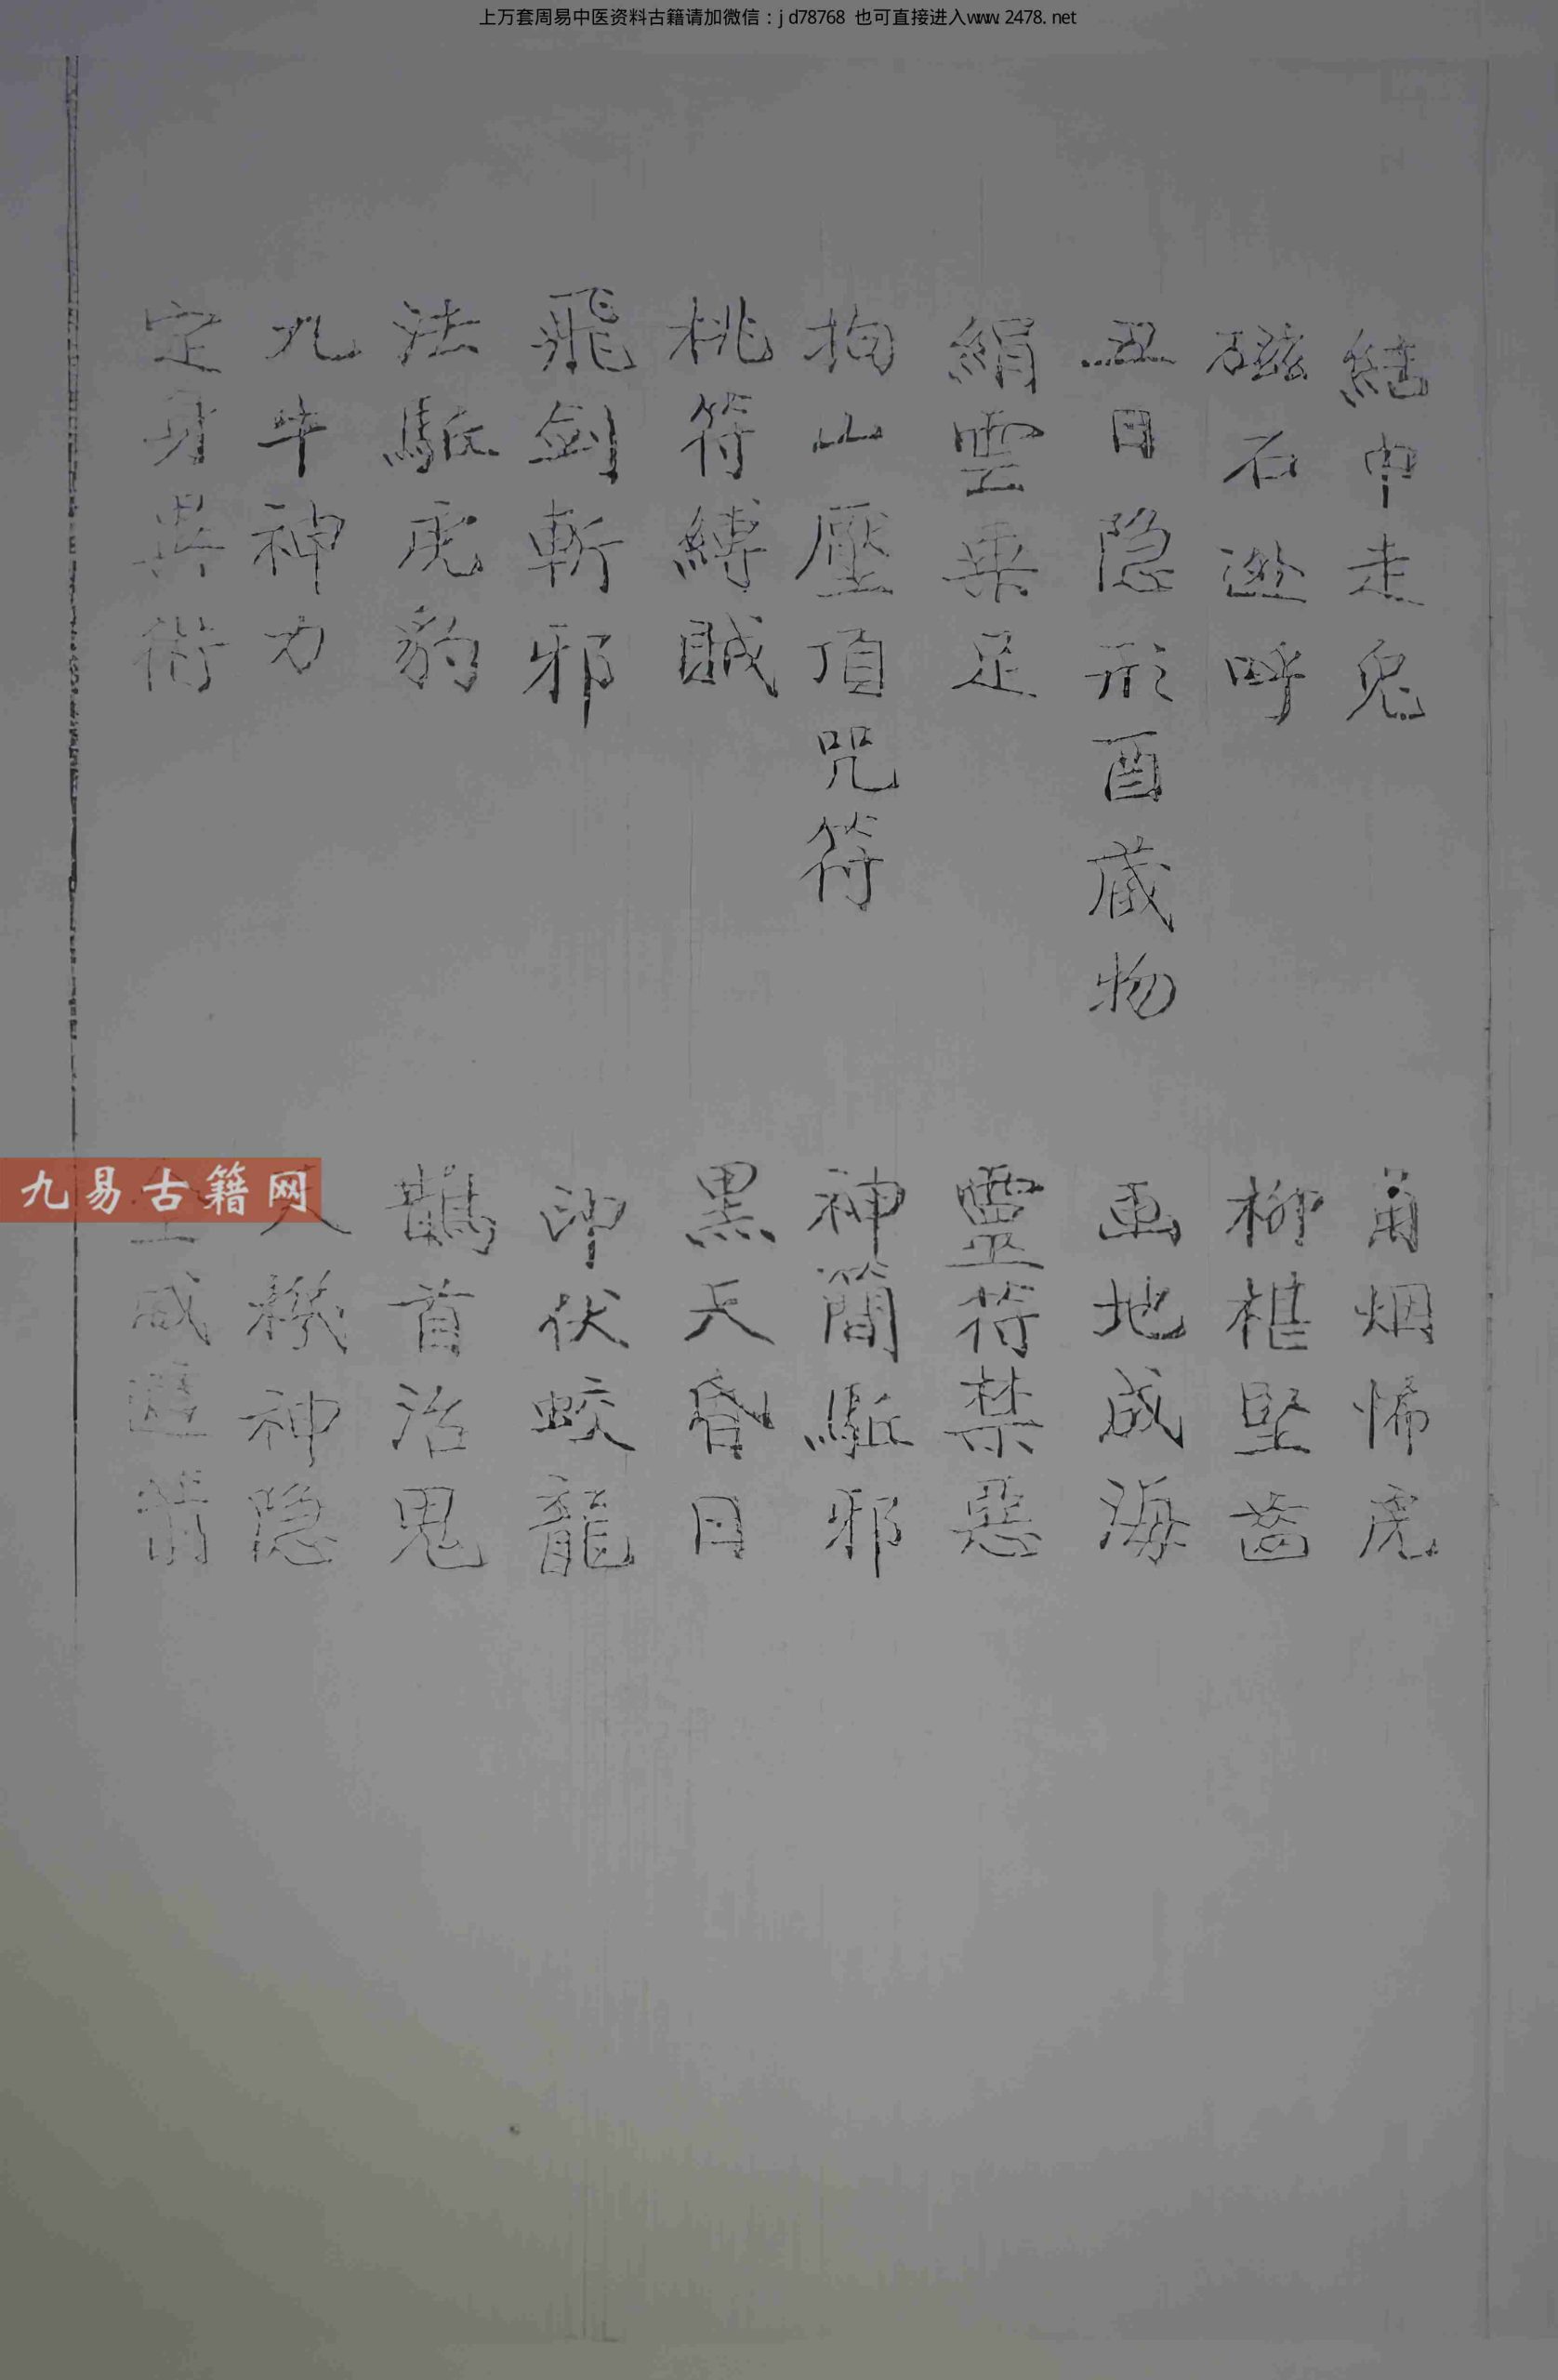 上万套周易中医资料古籍请加微信：jd78768 也可直接进入www.2478.net
結巾走兔
角烟怖虎
磁石遊呼
柳椹堅齒
丑日隐形酉蔵物
画地成海
絹雲乗足
靈符禁惡
拘山壓頂咒符
神簡駈邪
桃符縛賊
黒天昏目
飛劍斬邪
印伏蛟龍
法駈虎豹
鵲首治鬼
九牛神力
機神隐
定身異術
威
九易古籍网